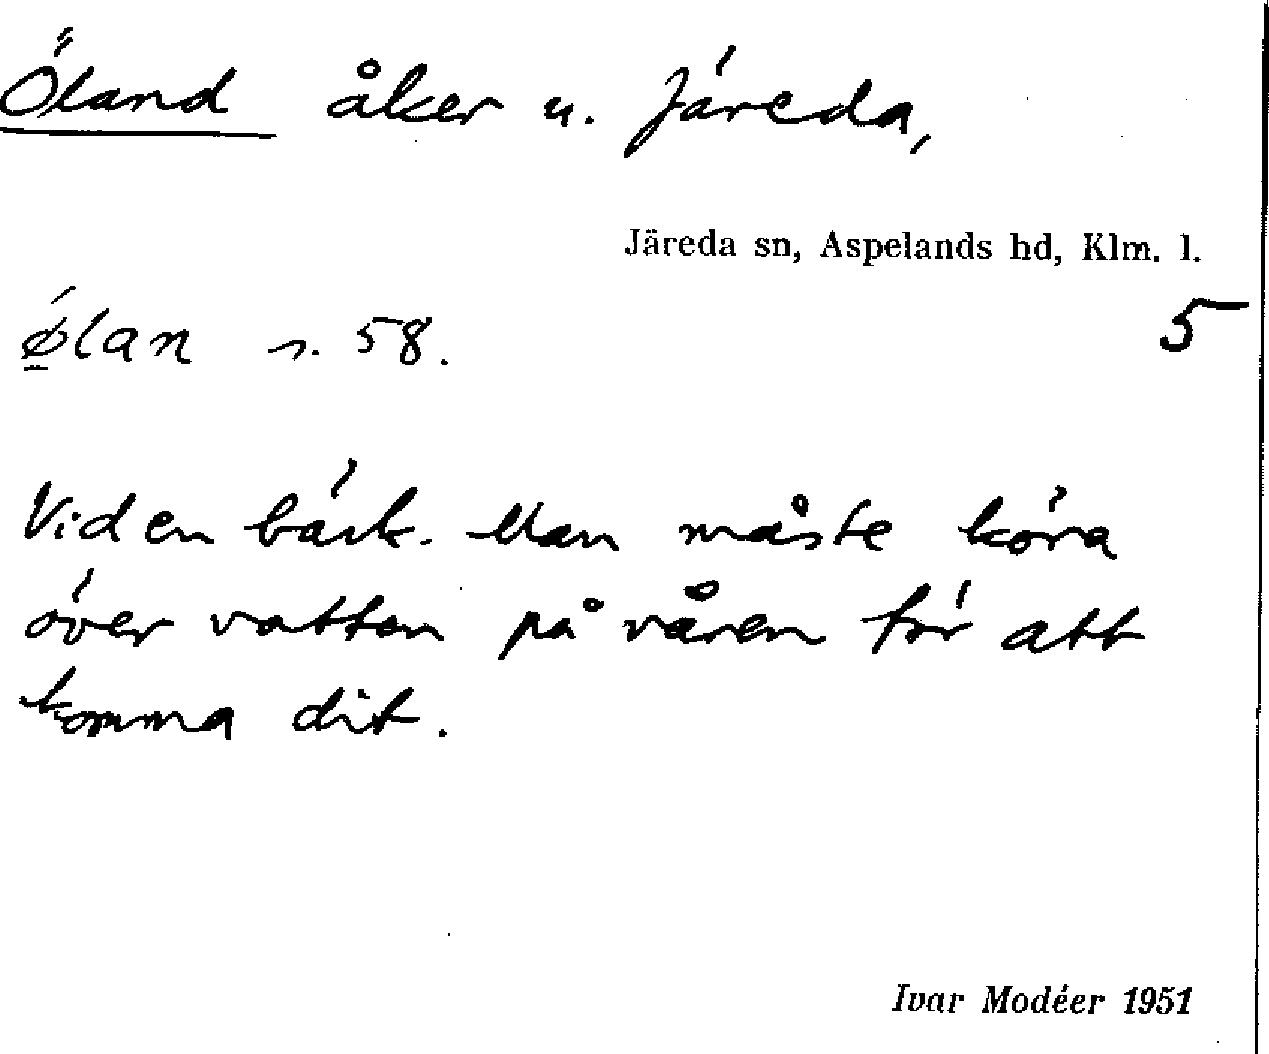 Öland åker u. Järeda,
Järeda sn, Aspelands hd, Klm. l.
ǿlan s. 58.
5
Vid en bäck. Man måste köra
över vatten på våren för att
komma dit.
Ivar Modéer 1951